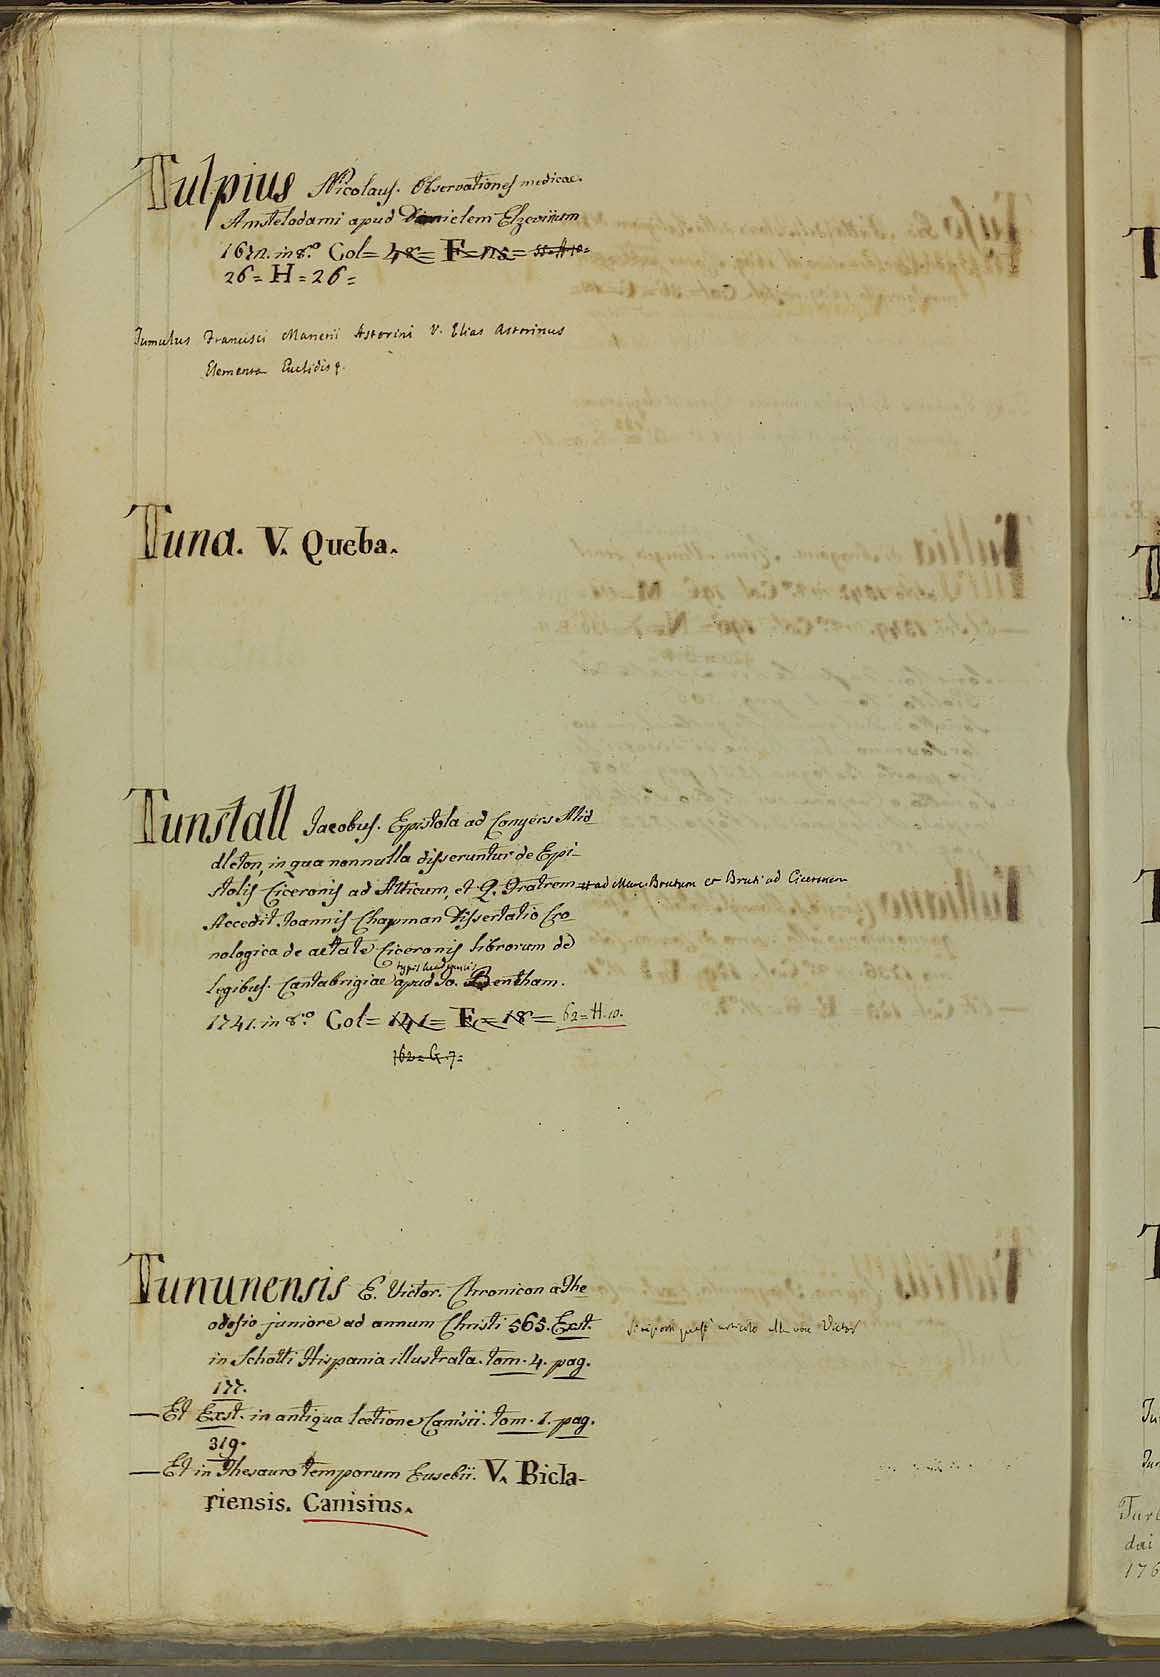 Tulpius Nicolaus. Observationes medicae.
Amstelodami apud Danielem Elzevirium
1672. in 8.º Col= 48= F= 115= 55=H.10=
26= H =26=
Tumulus Francisci Manerii Astorini V. Elias Astorinus
Elementa Euclidis &.
Tuna. V. Queba.
Tunstall Jacobus. Epistola ad Conyers Mid
dleton, in qua nonnulla disseruntur de Epi-
stolis Ciceronis ad Atticum, et Q. Fratrem et ad Marc. Brutum et Bruti ad Ciceronem
Accedit Joannis Chapman Dissertatio Cro
nologica de aetate Ciceronis librorum de
typis academicis
Legibus. Cantabrigiae apud Jo. Bentham.
1741. in 8.º Col= 141= F= 18= 62=H.10.
162= G.7=
Tununensis E. Victor. Chronicon a The
odosio juniore ad annum Christi 565. Exst.
in Schotti Hispania illustrata. tom. 4. pag.
177.
— Et Exst. in antiqua lectione Canisii. tom. 1. pag.
319.
— Et in Thesauro temporum Eusebii. V. Bicla-
riensis. Canisius.
Si riporti quest' articolo alla voce Victor